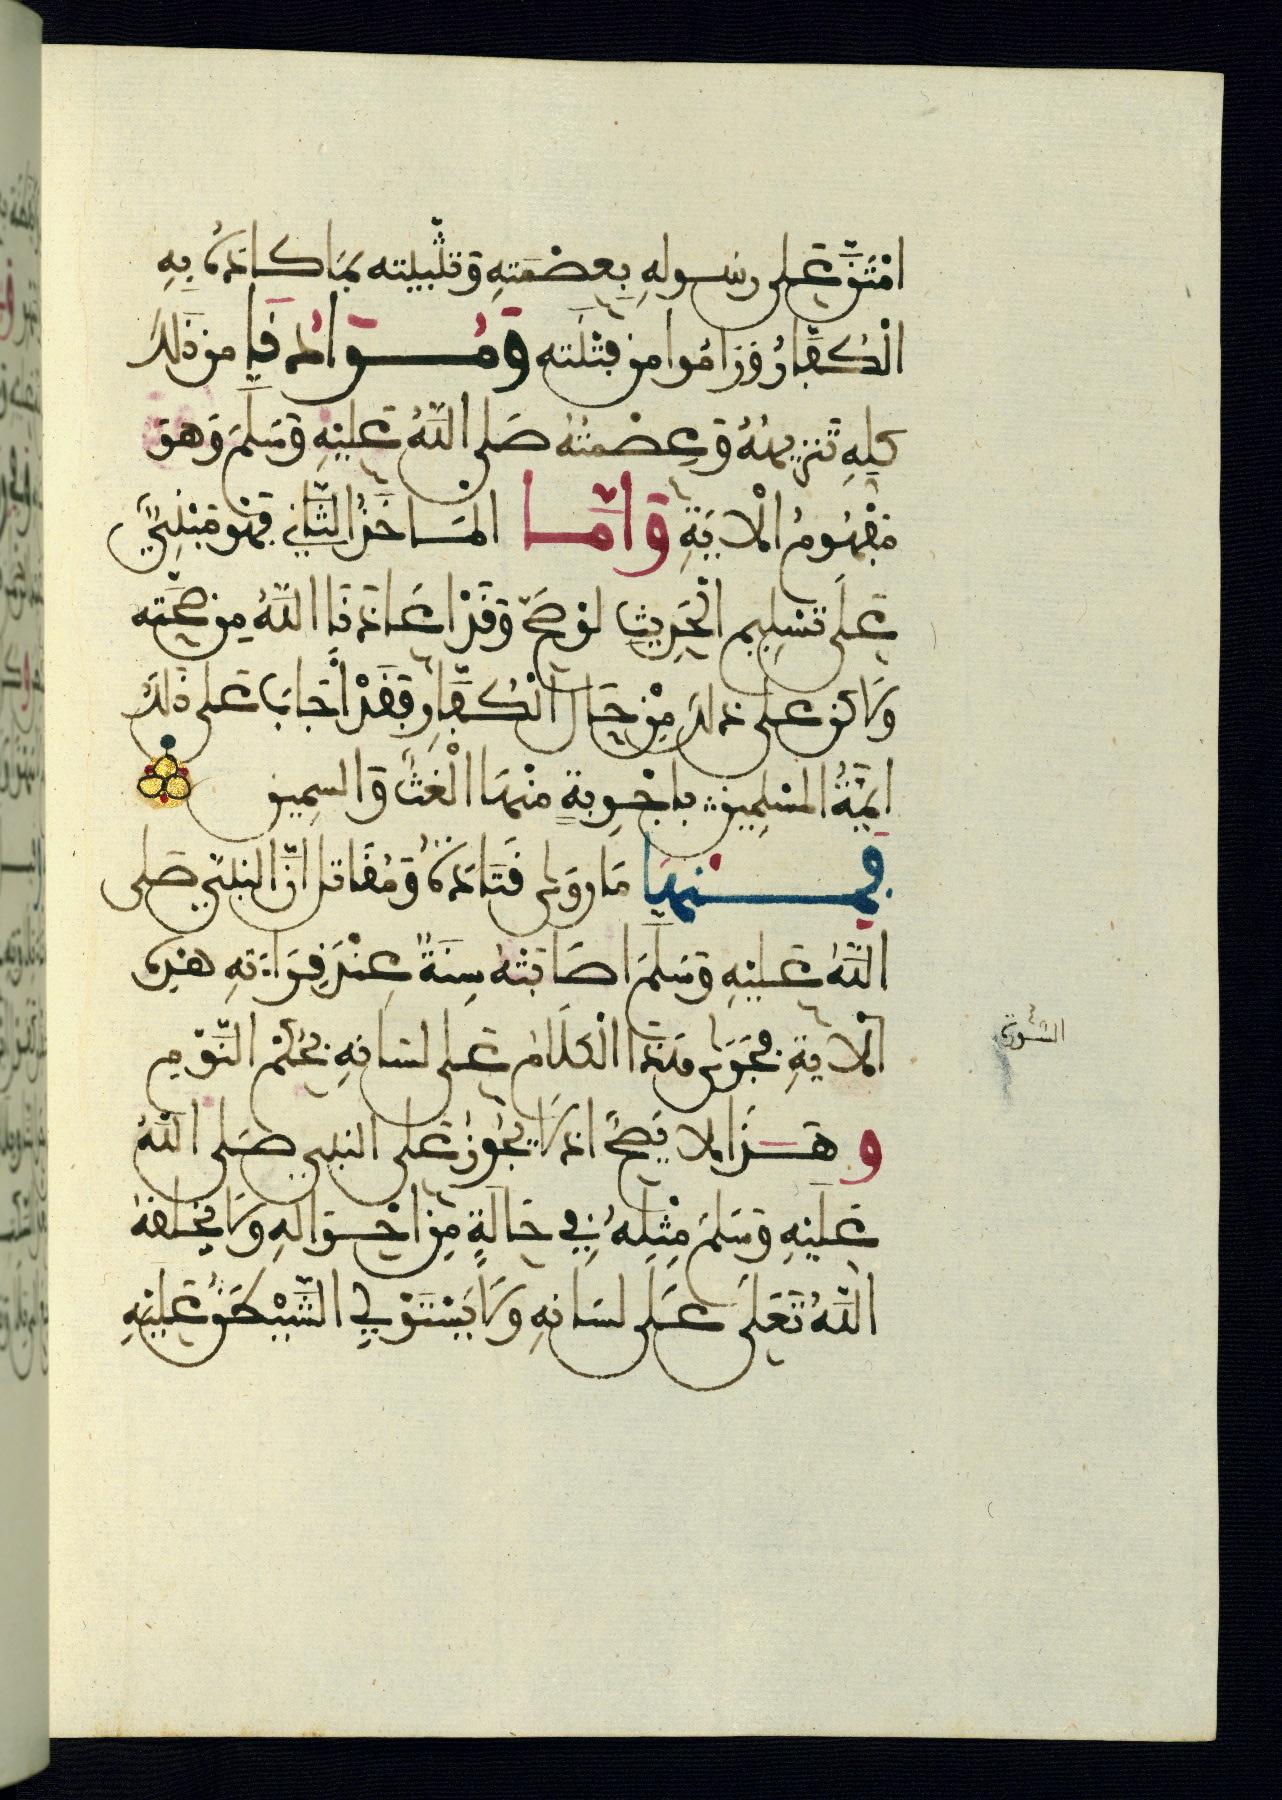 امْتَنَّ عَلى رسُولهِ بِعِصْمَتِهِ وَتَثْبيته بمَا كادَهُ بِهِ
الْكُفَّارُ وَرَامُوا من فِتْنَته وَمُرَادُنَا من ذَلكَ
كلِهِ تَنزيهُهُ وَعِصْمتُهُ صَلى اللَّهُ عَلَيْهِ وَسَلمَ وَهوَ
مَفْهُومُ الْايَةِ وَامَّا الْمَاخَذُ الثَّاني فَهْوَ مَبْنِيٌّ
عَلَى تَسْلِيم الْحَدِيثِ لوْ صَحَّ وَقَدْ اعَاذَنَا اللَّهُ مِن صِحَّته
ولَاكن على ذلكَ مِنْ حَال الْكُفَّارِ فَقَدْ اجَابَ عَلى ذَلكَ
ايمَّةُ المسْلِمِينَ باجْوِبةٍ منْهَا الْغَثُّ وَالسمِين
فَمِنْهَا مَا روَى قَتَادَةُ وَمُقَاتل انَّ النبِيّ صَلى
اللَّه عَليْهِ وَسَلَّمَ اصَابَتْهُ سِنَةٌ عِنْدَ قِرَاءَتهِ هذِهِ
الْايةِ فجَرَى هَذَا الْكَلَامُ عَلى لسَانهِ بحُكْم النَّوْمِ
وهَذَا لا يَصحُّ اذ لَا يجُوزُ عَلى النبي صَلى اللَّهُ
عَلَيْهِ وَسَلمَ مِثْلهُ في حَالَةٍ مِن احْوَالهِ ولَا يخْلقهُ
اللَّهُ تَعَلَى عَلَى لسَانهِ ولَا يَسْتَوْلي الشَّيْطَنُ عَلَيْهِ
السورة